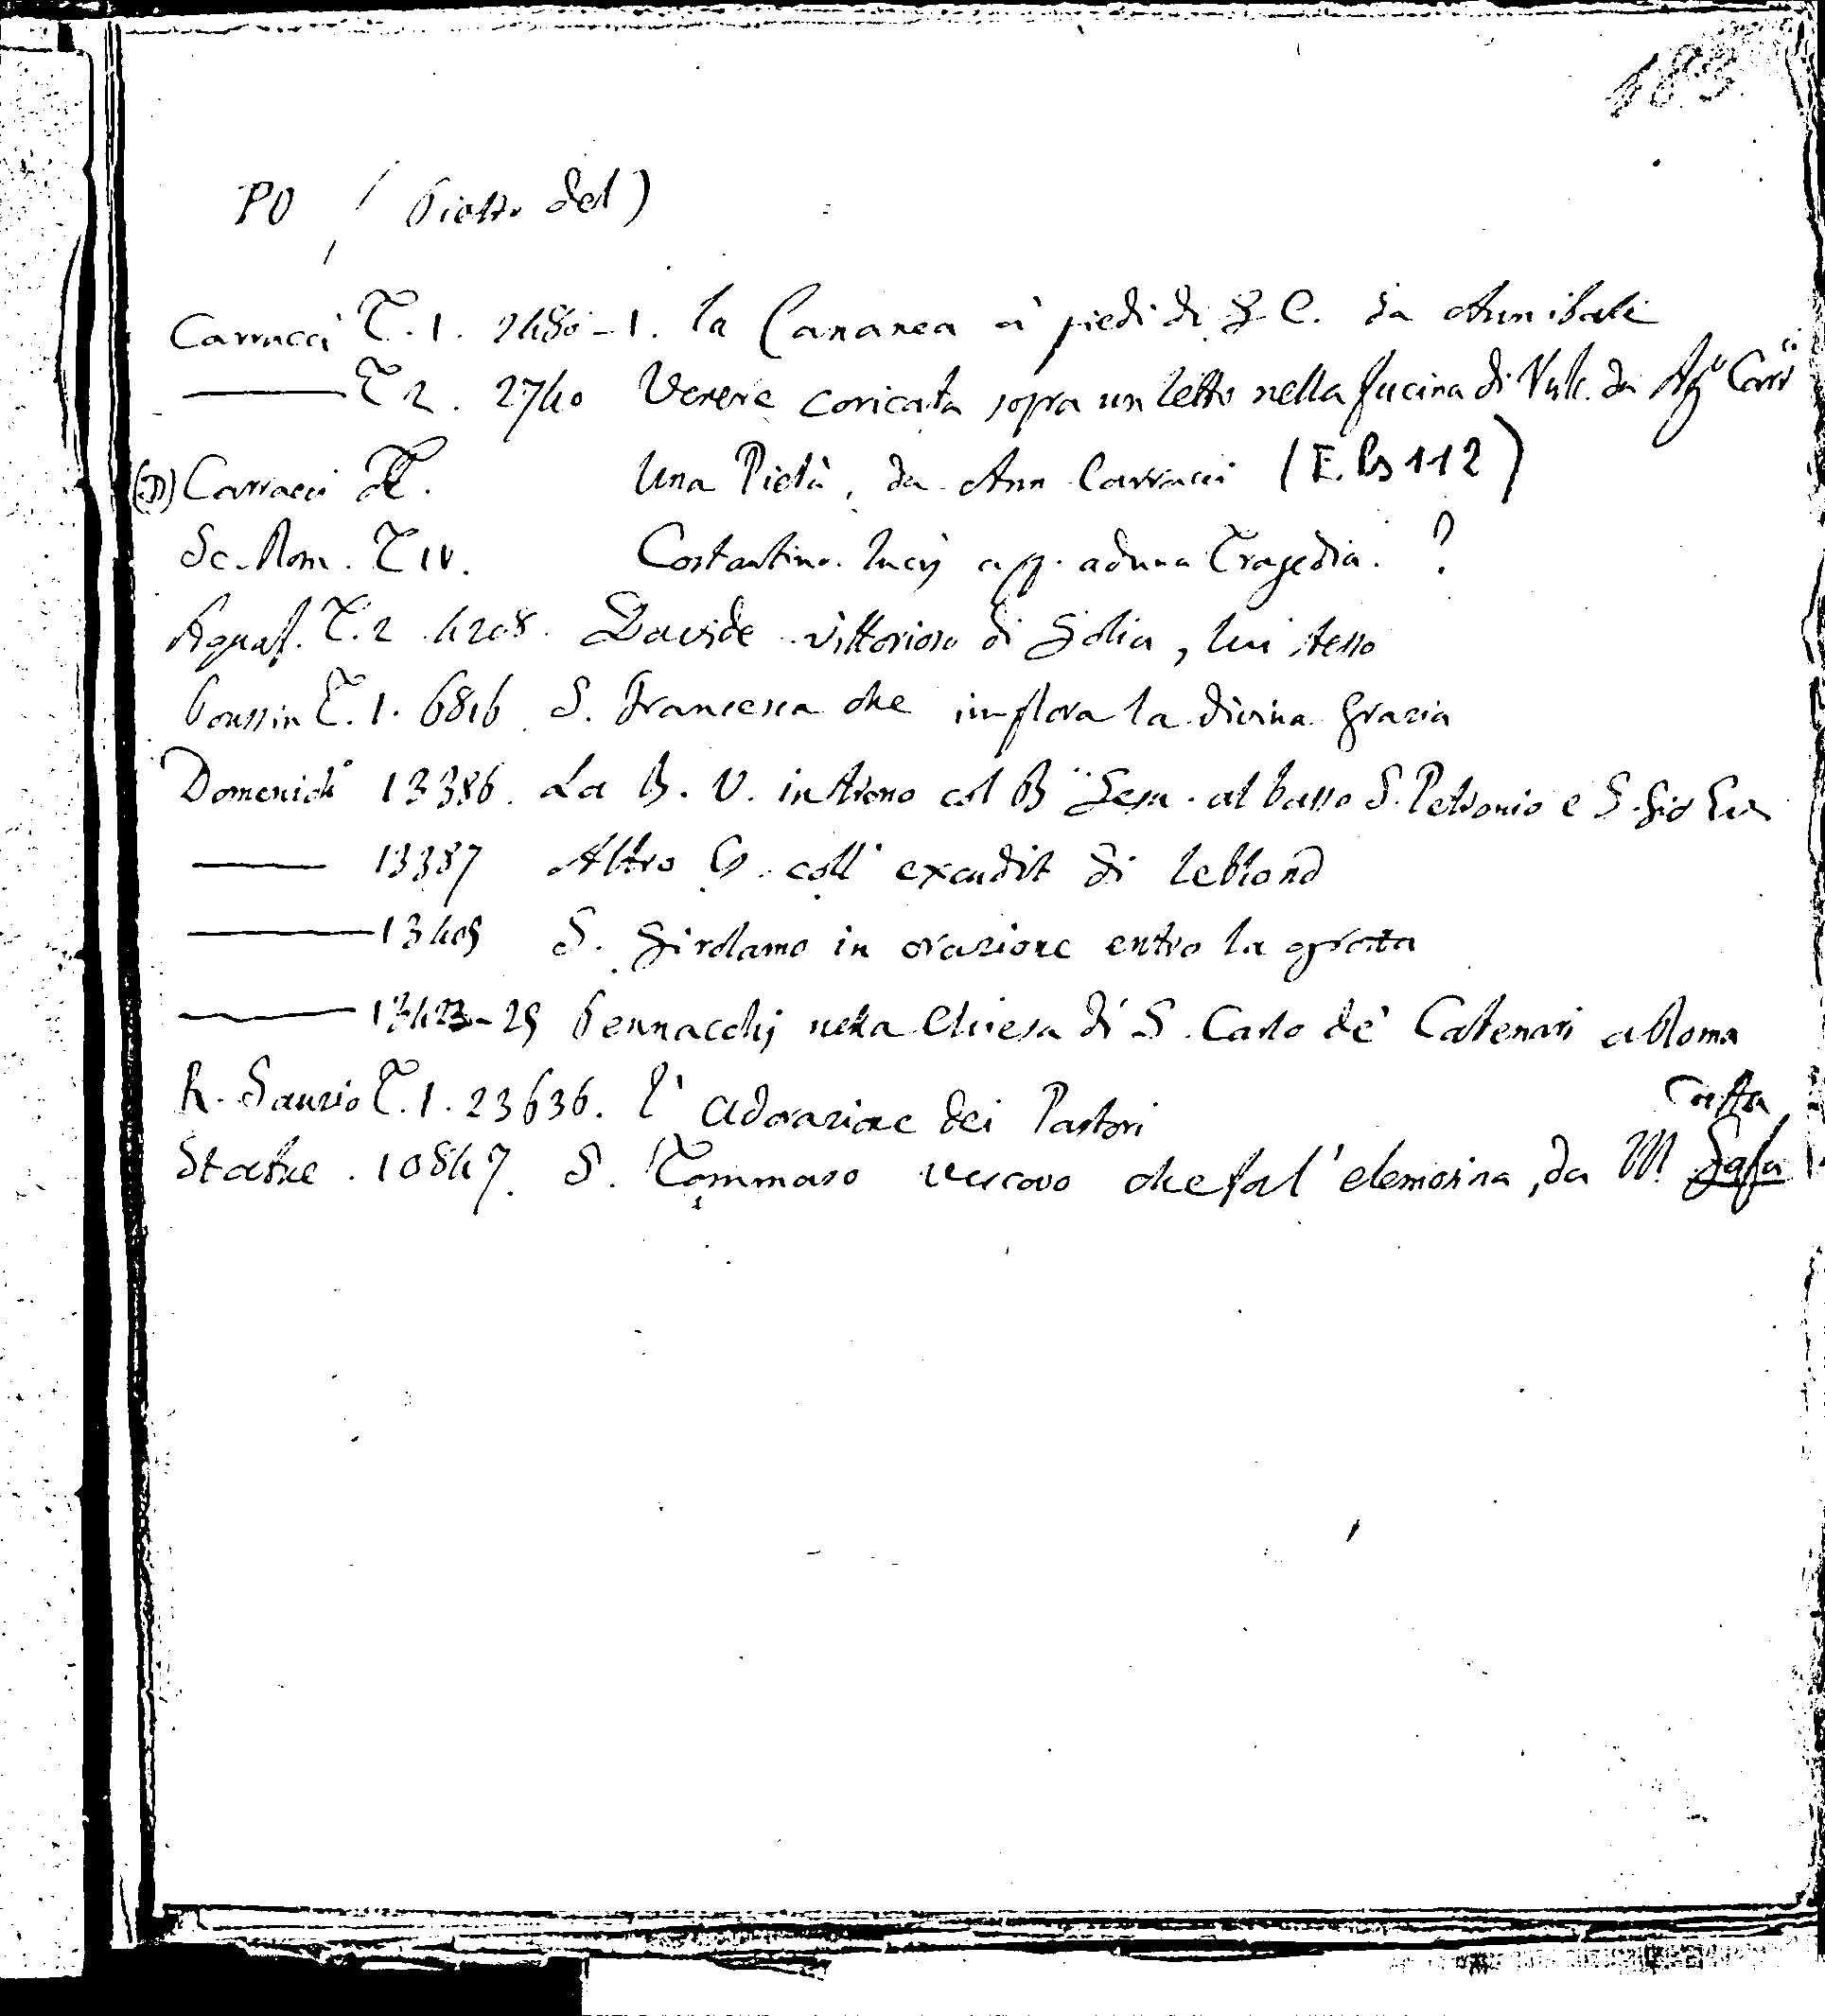 183
PO (Pietro del)
Carracci T. 1. 2480-1. la Cananea a' piedi di G C. da Annibale
T 2. 2740 Venere coricata sopra un letto nella fucina di Vulc. da Ago Carrci
Carracci T. Una Pietà, da Ann Carracci (E. Bs 112)
Sc. Rom. T IV. Costantino. ad una Tragedia. ?
T. 2. 4208. Davide vittorioso di Golia, lui stesso
Poussin T. 1. 6816 S. Francesca che implora la divina Grazia
Domenichº 13386. La B. V. in trono col B Gesu. al basso S. Petronio e S. Gio
13387 Altro coll' excudit di leblond
13409 S. Girolamo in orazione entro la grotta
13423-29 Pennacchj nella Chiesa di S. Carlo de' Catenari a Roma
R. Sanzio T. 1. 23636. l' adorazione dei Pastori
Statue. 10847. S. Tommaso vescovo che fa l' elemosina, da M.